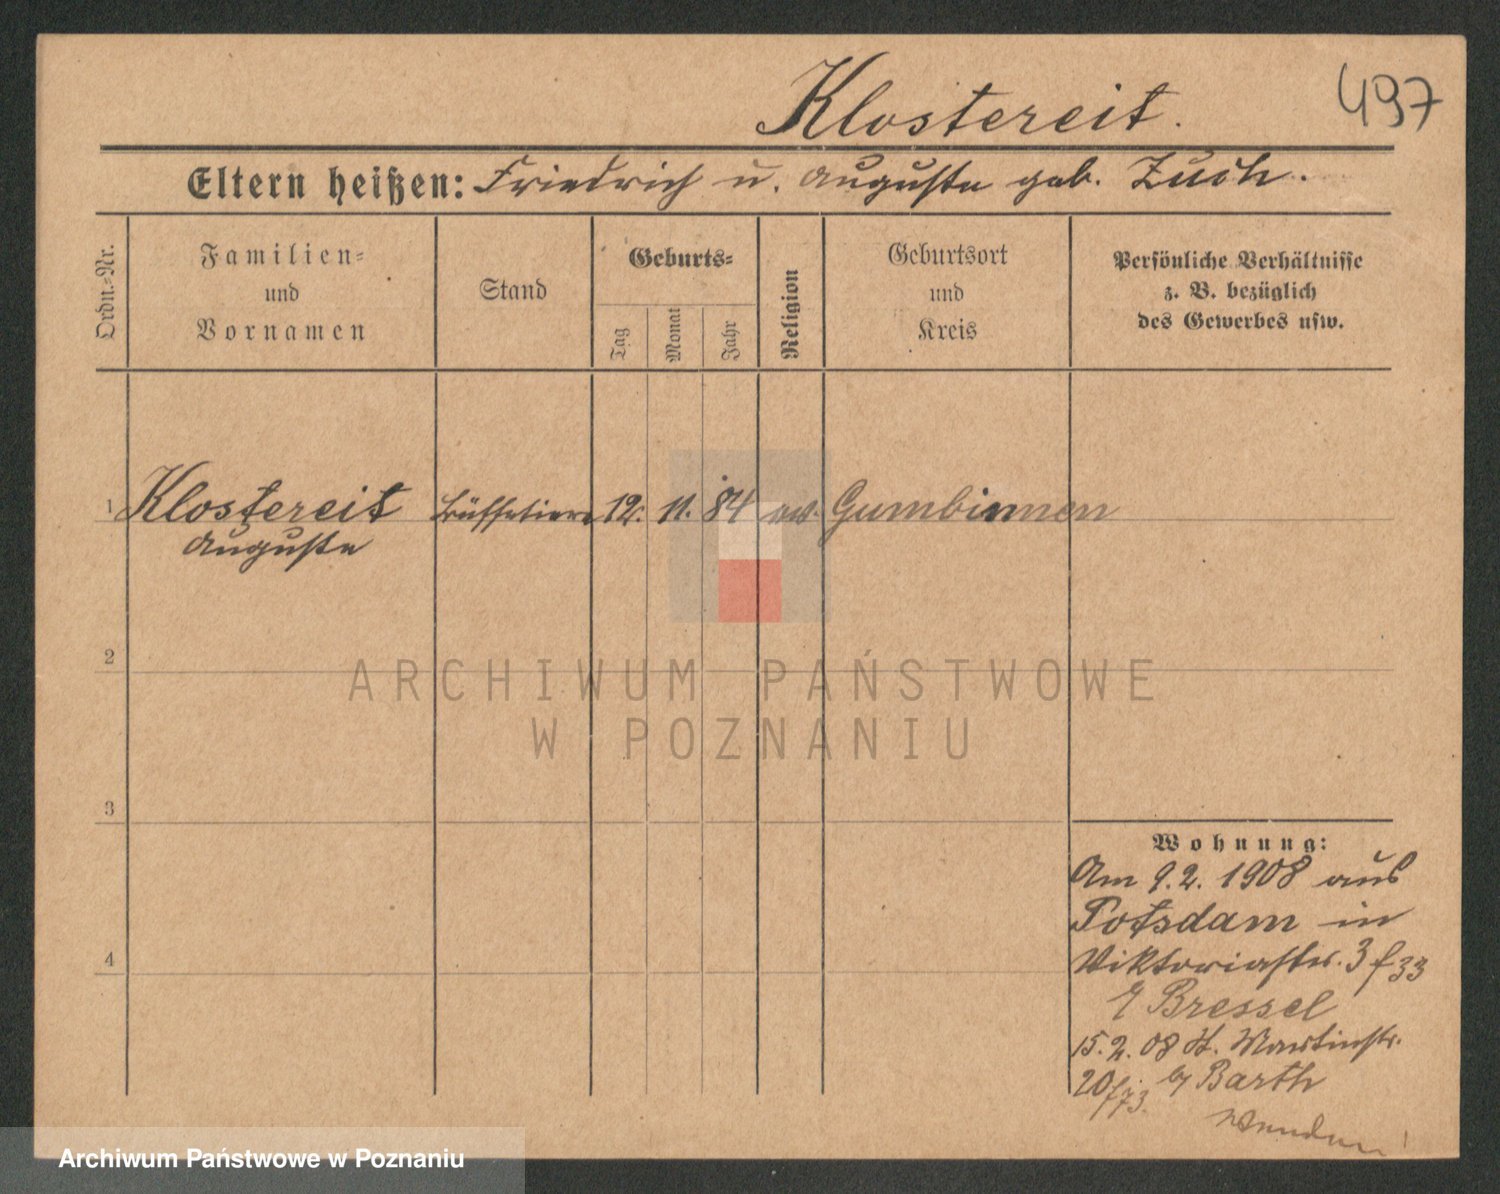 497
Klostereit.
Eltern heißen: Friedrich u. Auguste geb. Zuch.
Ordn.-Nr.
Familien-
und
Vornamen
Stand
Geburts-
Tag
Monat
Jahr
Religion
Geburtsort
und
Kreis
Persönliche Verhältnisse
z. B. bezüglich
des Gewerbes usw.
1 Klostereit Büffetiere 12. 11. 84 ev. Gumbinnen
Auguste
2
ARCHIWUM PAŃSTWOWE
W POZNANIU
3
Wohnung:
Am 9.2. 1908 aus
Potsdam in
Viktoriastr. 3 f 33
Bressel
4
15.2. 08 St. Martinstr.
20 by Barth
Wenden!
Archiwum Państwowe w Poznaniu